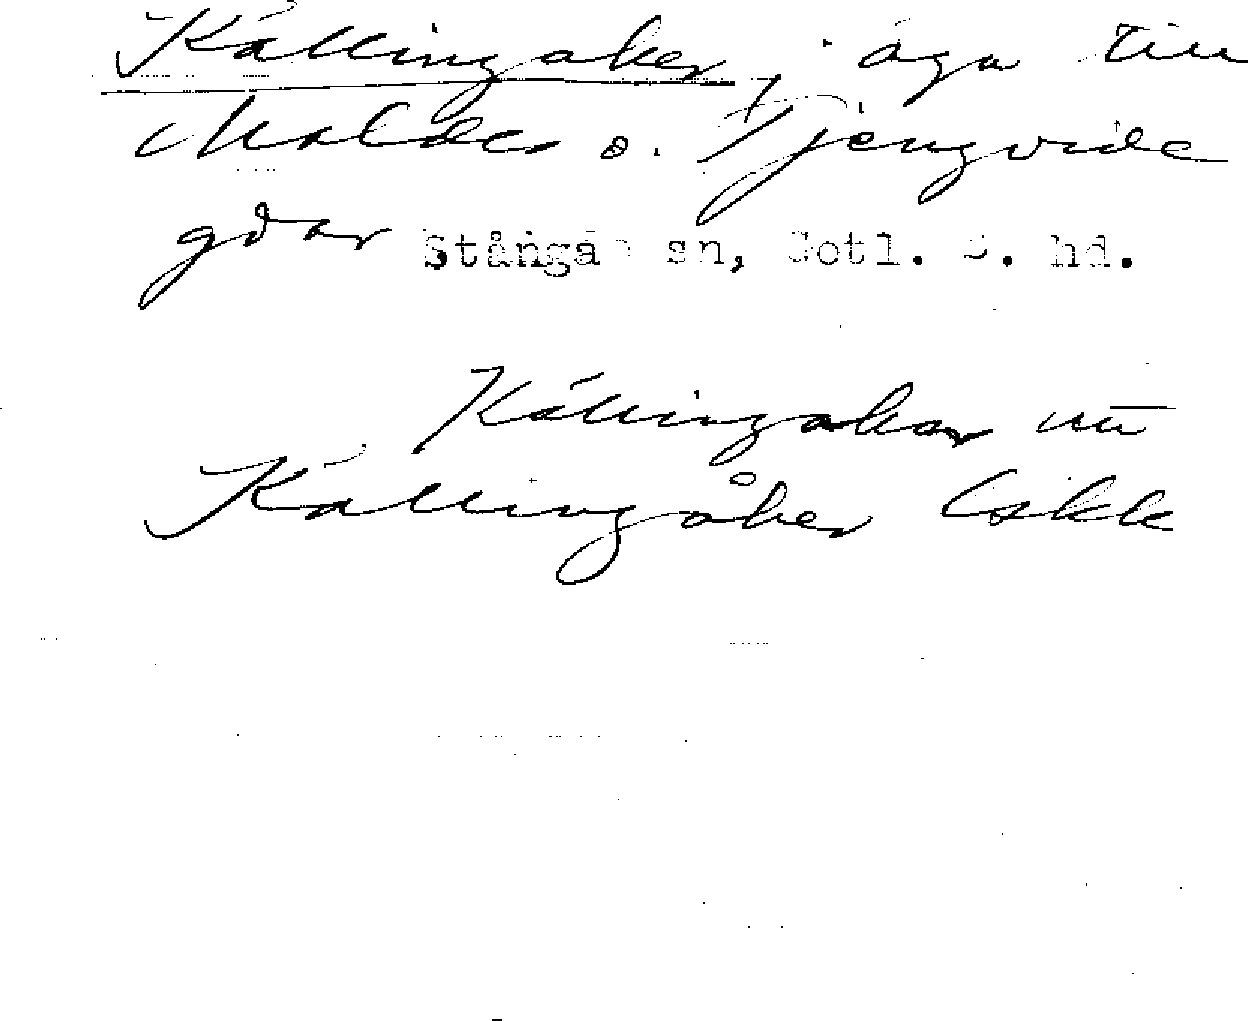 Källingaker, äga till
Maldes o. Tjengvide
gdar Stånga sn, Gotl. S. hd.
Källingakar
Källingåker Lskk